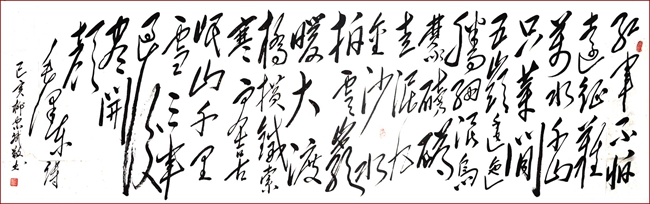 红军不怕
远征難
萬水千山
只等闲
五岭逶迤
腾细浪乌
蒙磅礴
走泥丸
金沙水
拍雲崖
暖大渡
橋横鐵索
寒更喜
岷山千里
雪三军
过后
尽開
颜
毛泽东诗
己亥